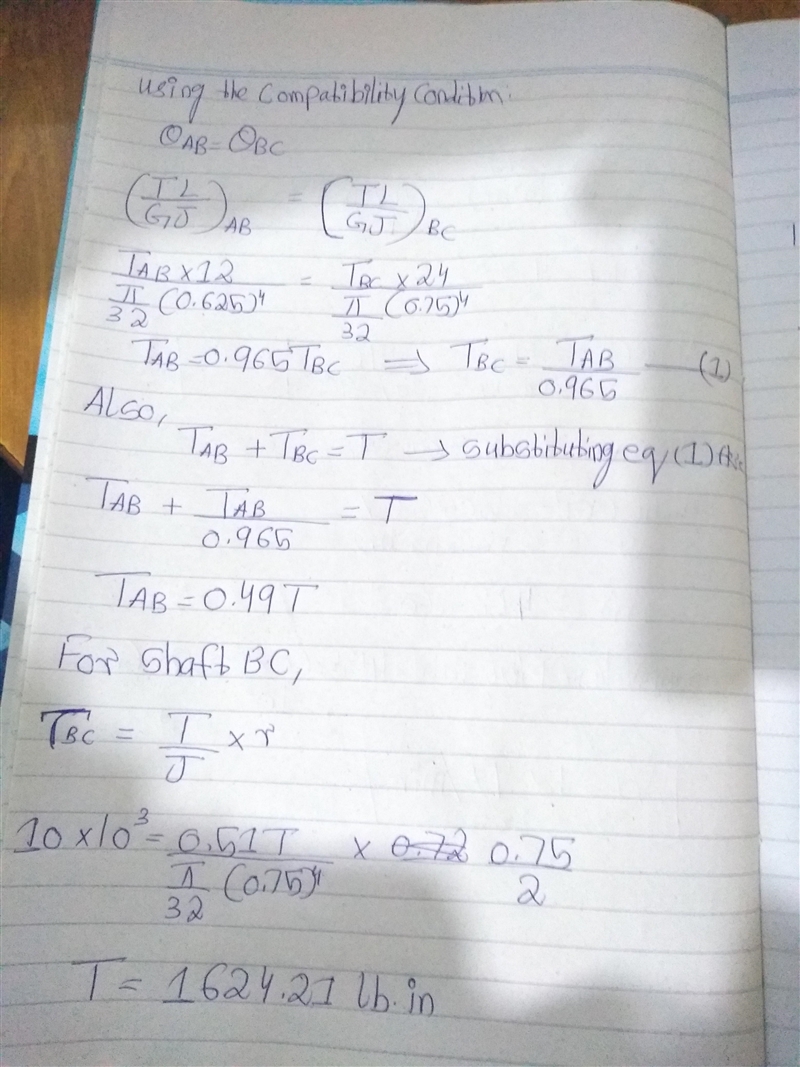 Using the Compatibility Conditm.
θAB = θBC
(TL/GJ)AB = (TL/GJ)BC
TAB × 12 / (π/32 (0.625)⁴) = TBC × 24 / (π/32 (0.75)⁴)
TAB = 0.965 TBC ⟹ TBC = TAB/0.965 — (1)
Also,
TAB + TBC = T → Substituting eq (1)
TAB + TAB/0.965 = T
TAB = 0.49T
For Shaft BC,
τBC = T/J × r
10 × 10³ = 0.51T / (π/32 (0.75)⁴) × 0.72 0.75/2
T = 1624.21 lb.in